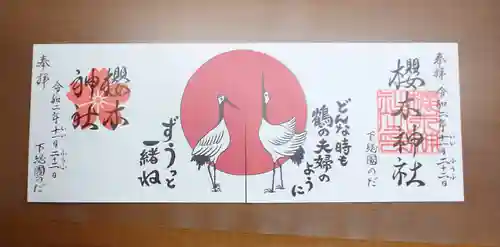 奉拝
櫻木神社
令和二年十一月二十二日
いいふうふ
下総國のだ
どんな時も
鶴の夫婦の
ように
ずうっと
一緒ね
奉拝
櫻木
神社
令和二年十一月二十二日
いいふうふ
下総國のだ